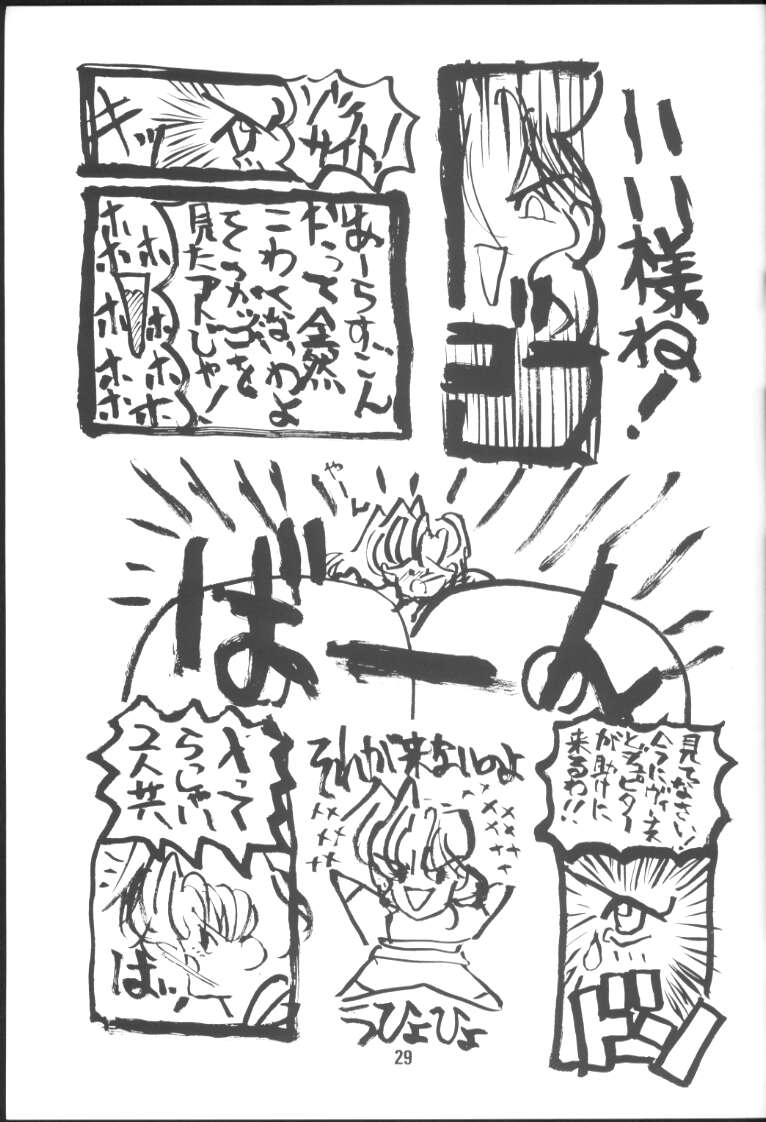 いい様ね!
ゴン
ゾイサイト!
キッ
あーらすごん
だって全然
こわくないわよ
そのかっこを
見たアトじゃ!
ホホホホホホホホホホ
やーん
ばーん
見てなさい!
今にヴィーナス
とジュピター
が助けに
来るわ!!
ドン
それが来ないのよ
っひょひょ
入って
らっしゃい
2人共
ばっ!
29